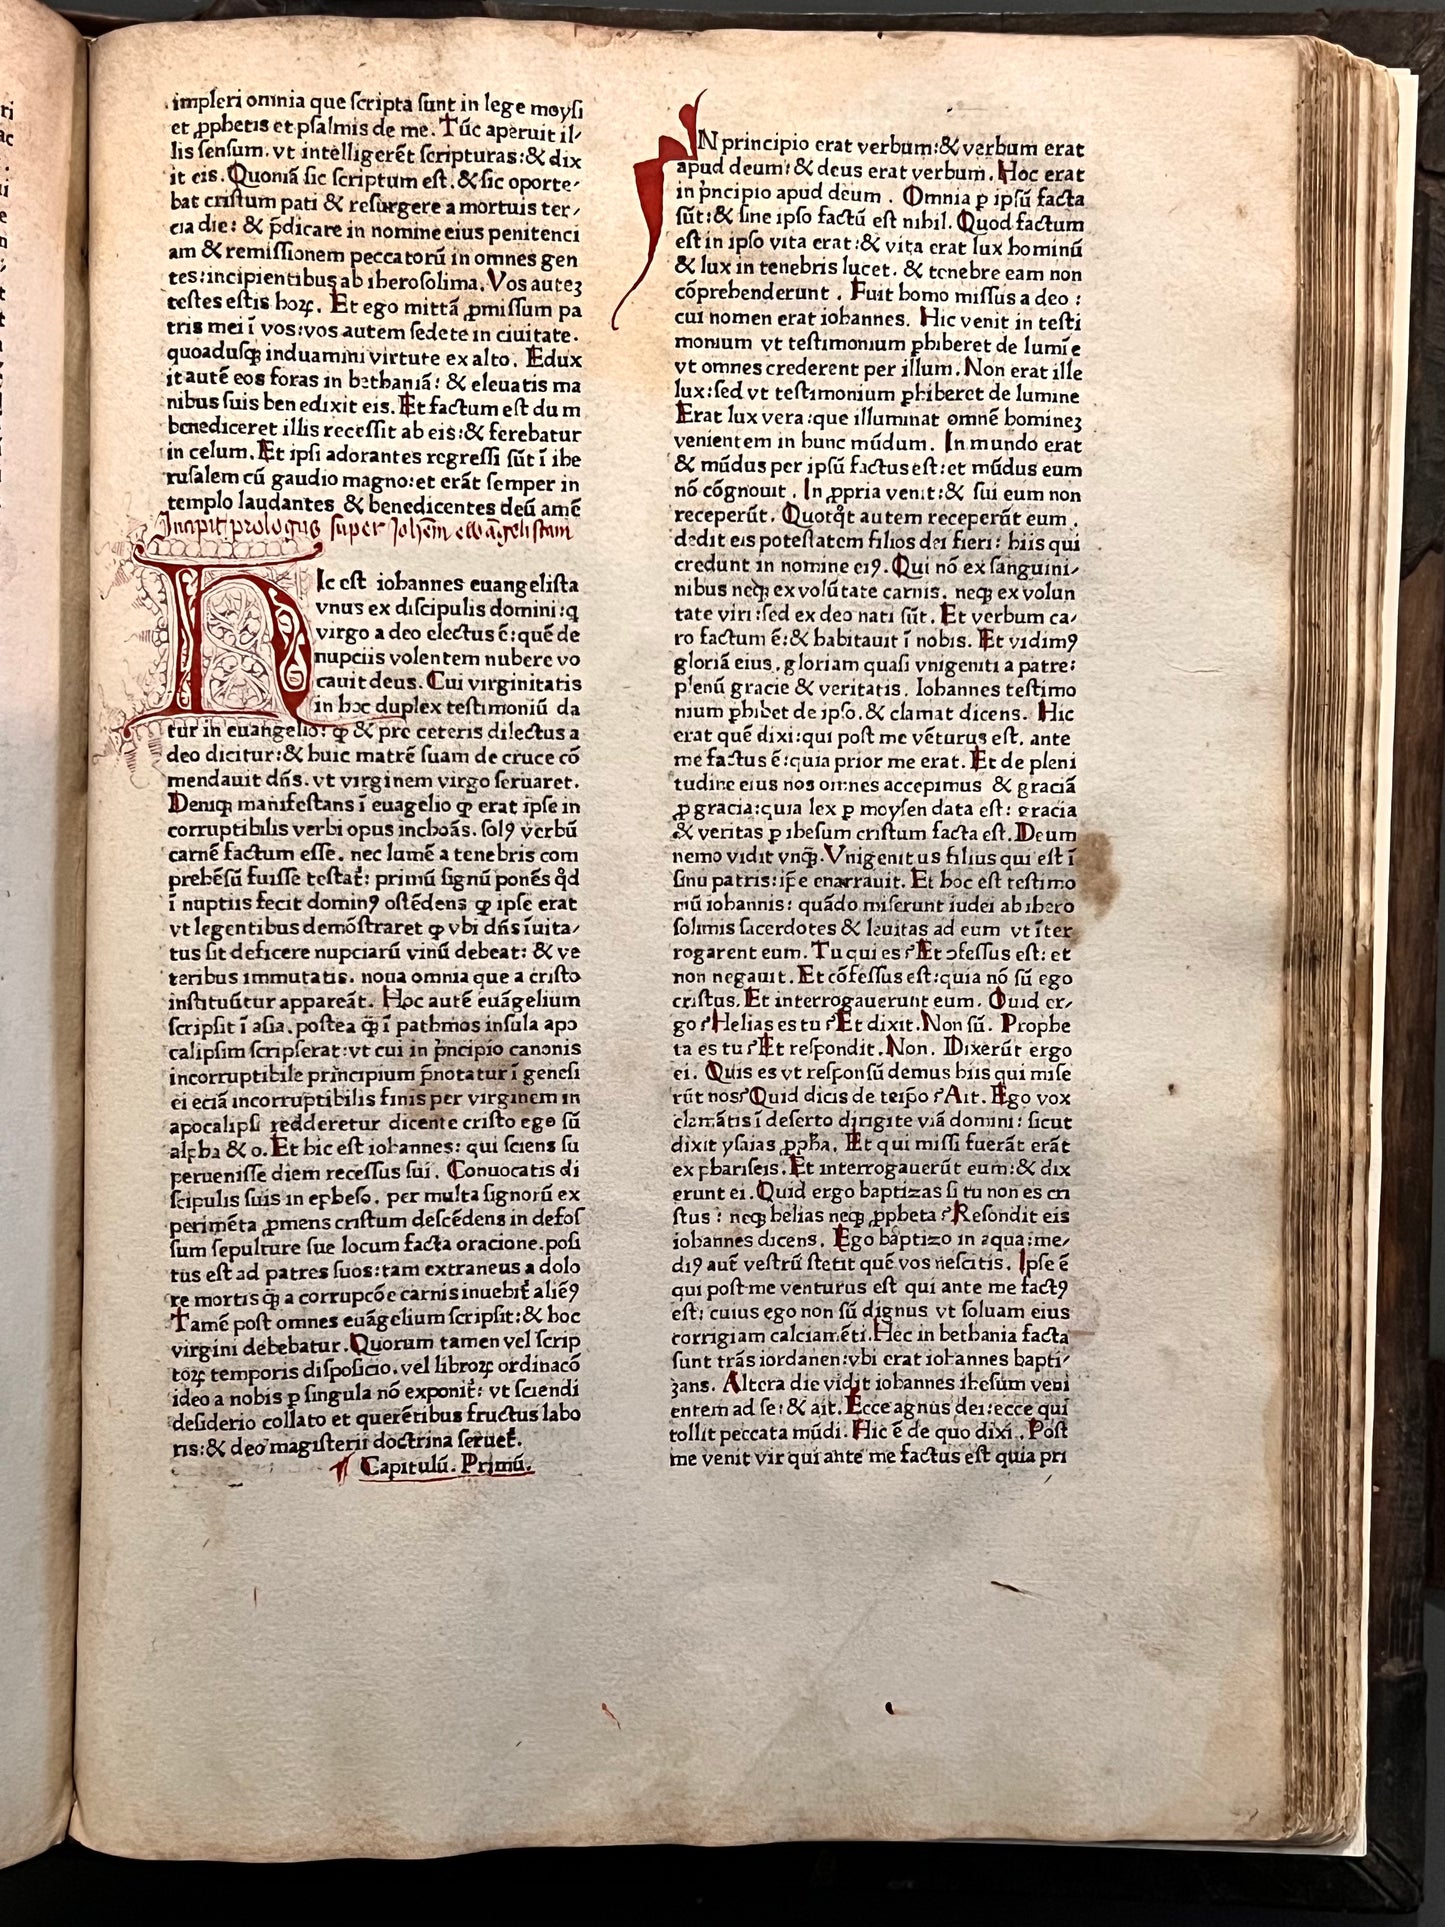 impleri omnia que ſcripta ſunt in lege moyſi
et ꝓphetis et pſalmis de me. Tūc aperuit il⸗
lis ſenſum. vt intelligerēt ſcripturas: & dix
it eis. Quoniā ſic ſcriptum eſt. & ſic oporte⸗
bat criſtum pati & reſurgere a mortuis ter⸗
cia die: & p̄dicare in nomine eius penitenci
am & remiſſionem peccatorū in omnes gen
tes: incipientibus ab iheroſolima. Vos auteꝫ
teſtes eſtis hoꝝ. Et ego mittā ꝓmiſſum pa
tris mei ī vos: vos autem ſedete in ciuitate.
quoaduſqꝫ induamini virtute ex alto. Edux
it autē eos foras in bethaniā: & eleuatis ma
nibus ſuis benedixit eis. Et factum eſt dum
benediceret illis receſſit ab eis: & ferebatur
in celum. Et ipſi adorantes regreſſi ſūt ī ihe
ruſalem cū gaudio magno: et erāt ſemper in
templo laudantes & benedicentes deū amē
Incipit prologus ſuper Johēm ewāgeliſtam
HIc eſt iohannes euangeliſta
vnus ex diſcipulis domini: q
virgo a deo electus ē: quē de
nupciis volentem nubere vo
cauit deus. Cui virginitatis
in hoc duplex teſtimoniū da
tur in euangelio: ꝙ & pre ceteris dilectus a
deo dicitur: & huic matrē ſuam de cruce cō
mendauit dn̄s. vt virginem virgo ſeruaret.
Deniqꝫ manifeſtans ī euāgelio ꝙ erat ipſe in
corruptibilis verbi opus inchoās. ſolꝰ verbū
carnē factum eſſe. nec lumē a tenebris com
prehēſū fuiſſe teſtat᷑: primū ſignū ponēs qd̄
ī nuptiis fecit dominꝰ oſtēdens ꝙ ipſe erat
vt legentibus demōſtraret ꝙ vbi dn̄s īuita⸗
tus ſit deficere nupciarū vinū debeat: & ve
teribus immutatis. noua omnia que a criſto
inſtituūtur appareāt. Hoc autē euāgelium
ſcripſit ī aſia. poſtea q̄ꝫ ī pathmos inſula apo
calipſim ſcripſerat: vt cui in p̄ncipio canonis
incorruptibile principium p̄notatur ī geneſi
ei eciā incorruptibilis finis per virginem in
apocalipſi redderetur dicente criſto ego ſū
alpha & o. Et hic eſt iohannes: qui ſciens ſu
perueniſſe diem receſſus ſui. Conuocatis di
ſcipulis ſuis in epheſo. per multa ſignorū ex
perimēta ꝓmens criſtum deſcēdens in defoſ
ſum ſepulture ſue locum facta oracione. poſi
tus eſt ad patres ſuos: tam extraneus a dolo
re mortis q̄ꝫ a corrupcōe carnis inuenit᷑ aliēꝰ
Tamē poſt omnes euāgelium ſcripſit: & hoc
virgini debebatur. Quorum tamen vel ſcrip
toꝝ temporis diſpoſicio. vel libroꝝ ordinacō
ideo a nobis ꝑ ſingula nō exponit᷑: vt ſciendi
deſiderio collato et querētibus fructus labo
ris: & deo magiſterii doctrina ſeruet᷑.
Capitulū. Primū.
IN principio erat verbum: & verbum erat
apud deum: & deus erat verbum. Hoc erat
in p̄ncipio apud deum. Omnia ꝑ ipſū facta
ſūt: & ſine ipſo factū eſt nihil. Quod factum
eſt in ipſo vita erat: & vita erat lux hominū
& lux in tenebris lucet. & tenebre eam non
cōprehenderunt. Fuit homo miſſus a deo:
cui nomen erat iohannes. Hic venit in teſti
monium vt teſtimonium ꝓhiberet de lumīe
vt omnes crederent per illum. Non erat ille
lux: ſed vt teſtimonium ꝓhiberet de lumine
Erat lux vera: que illuminat omnē homineꝫ
venientem in hunc mūdum. In mundo erat
& mūdus per ipſū factus eſt: et mūdus eum
nō cōgnouit. In ꝓpria venit: & ſui eum non
receperūt. Quotqt̄ autem receperūt eum.
dedit eis poteſtatem filios dei fieri: hiis qui
credunt in nomine eiꝰ. Qui nō ex ſanguini⸗
nibus neqꝫ ex volūtate carnis. neqꝫ ex volun
tate viri: ſed ex deo nati ſūt. Et verbum ca⸗
ro factum ē: & habitauit ī nobis. Et vidimꝰ
gloriā eius. gloriam quaſi vnigeniti a patre:
plenū gracie & veritatis. Iohannes teſtimo
nium ꝓhibet de ipſo. & clamat dicens. Hic
erat quē dixi: qui poſt me vēturus eſt. ante
me factus ē: quia prior me erat. Et de pleni
tudine eius nos omnes accepimus & graciā
ꝓ gracia: quia lex ꝑ moyſen data eſt: gracia
& veritas ꝑ iheſum criſtum facta eſt. Deum
nemo vidit vnq̄ꝫ. Vnigenitus filius qui eſt ī
ſinu patris: ip̄e enarrauit. Et hoc eſt teſtimo
niū iohannis: quādo miſerunt iudei ab ihero
ſolimis ſacerdotes & leuitas ad eum vt īter
rogarent eum. Tu qui es? Et ↄfeſſus eſt: et
non negauit. Et cōfeſſus eſt: quia nō ſū ego
criſtus. Et interrogauerunt eum. Quid er⸗
go? Helias es tu? Et dixit. Non ſū. Prophe
ta es tu? Et reſpondit. Non. Dixerūt ergo
ei. Quis es vt reſponſū demus hiis qui miſe
rūt nos? Quid dicis de teipſo? Ait. Ego vox
clamātis ī deſerto dirigite viā domini: ſicut
dixit yſaias ꝓpħa. Et qui miſſi fuerāt erāt
ex phariſeis. Et interrogauerūt eum: & dix
erunt ei. Quid ergo baptizas ſi tu non es cri
ſtus: neqꝫ helias neqꝫ ꝓpheta? Reſondit eis
iohannes dicens. Ego baptizo in aqua: me⸗
diꝰ autē veſtrū ſtetit quē vos neſcitis. Ipſe ē
qui poſt me venturus eſt qui ante me factꝰ
eſt: cuius ego non ſū dignus vt ſoluam eius
corrigiam calciamēti. Hec in bethania facta
ſunt trās iordanen: vbi erat iohannes bapti⸗
zans. Altera die vidit iohannes iheſum veni
entem ad ſe: & ait. Ecce agnus dei: ecce qui
tollit peccata mūdi. Hic ē de quo dixi. Poſt
me venit vir qui ante me factus eſt quia pri